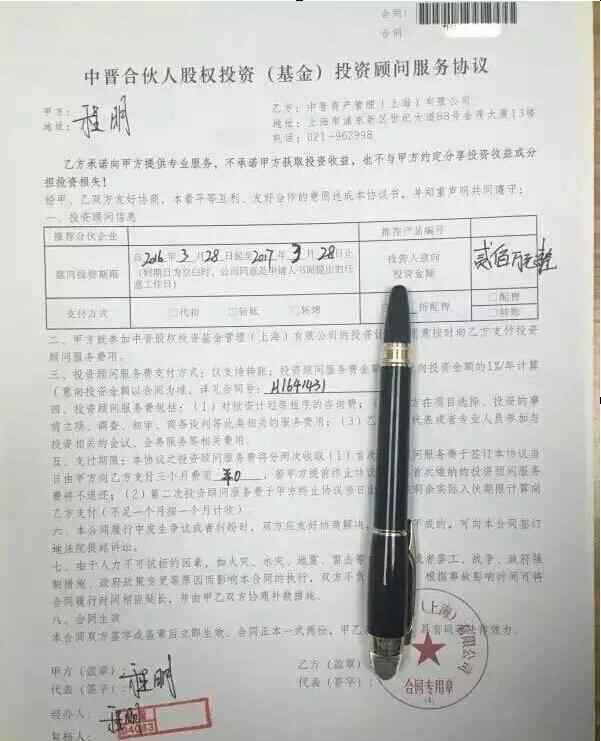 合同:
合同
中晋合伙人股权投资（基金）投资顾问服务协议
甲方: 程明
地址:
乙方: 中晋资产管理（上海）有限公司
地址: 上海市浦东新区世纪大道88号金茂大厦13楼
电话: 021-962998
乙方承诺向甲方提供专业服务，不承诺甲方获取投资收益，也不与甲方约定分享投资收益或分
担投资损失！
经甲、乙双方友好协商，本着平等互利、友好合作的意愿达成本协议书，并郑重声明共同遵守：
一、投资顾问信息
推荐合伙企业 推荐产品编号
意向投资期限 自2016年3月28日起至2017年3月28日止
（到期日为空白时，公司同意是申请人书面提出的任
意工作日）
投资人意向
投资金额
贰佰万元整
支付方式 □代扣 □转账 □转续 折配得 □配得 □转账
二、甲方就参加中晋股权投资基金管理（上海）有限公司的投资 意按时向乙方支付投资
顾问服务费用。
三、投资顾问服务费支付方式：仅支持转账；投资顾问服务费金 向投资金额的1%/年计算
（意向投资金额以合同为准，详见合同号: H1641431
四、投资顾问服务费包括：（1）对投资计划等程序的咨询费；（ 方在项目选择、投资的事
前立项、调查、初审、商务谈判等此类相关的服务费用；（3）乙 代表或者专业人员参加与
投资相关的会议、会务服务等相关费用。
五、支付期限：本协议之投资顾问服务费将分两次收取（1）首次 问服务费于签订本协议当
日由甲方向乙方支付三个月费用 ¥0 ，若甲方提前终止协议 首次缴纳的投资顾问服务
费将不退还；（2）第二次投资顾问服务费于甲方终止协议当日 剩余实际入伙期限计算向
乙方支付（不足一个月按一个月计收）
六、本合同履行中发生争议或者纠纷时，双方应友好协商解决， 不成的，可向本合同签订
地法院提起诉讼。
七、由于人力不可抗拒的因素，如火灾、水灾、地震、雷击等 或者罢工、战争、政府强
制措施、政府政策变更等原因而影响本合同的执行，双方不负 根据事故影响时间可将
合同履行时间相应延长，并由甲乙双方协商补救措施。
八、合同生效
本合同双方签字或盖章后立即生效。合同正本一式两份，甲乙 具有同 律效力。
甲方（盖章）:
代表（签字）: 程明
乙方（盖章）
代表（签字）:
（上海） 有限公司
合同专用章
经办人: 程明
04083
复核人: